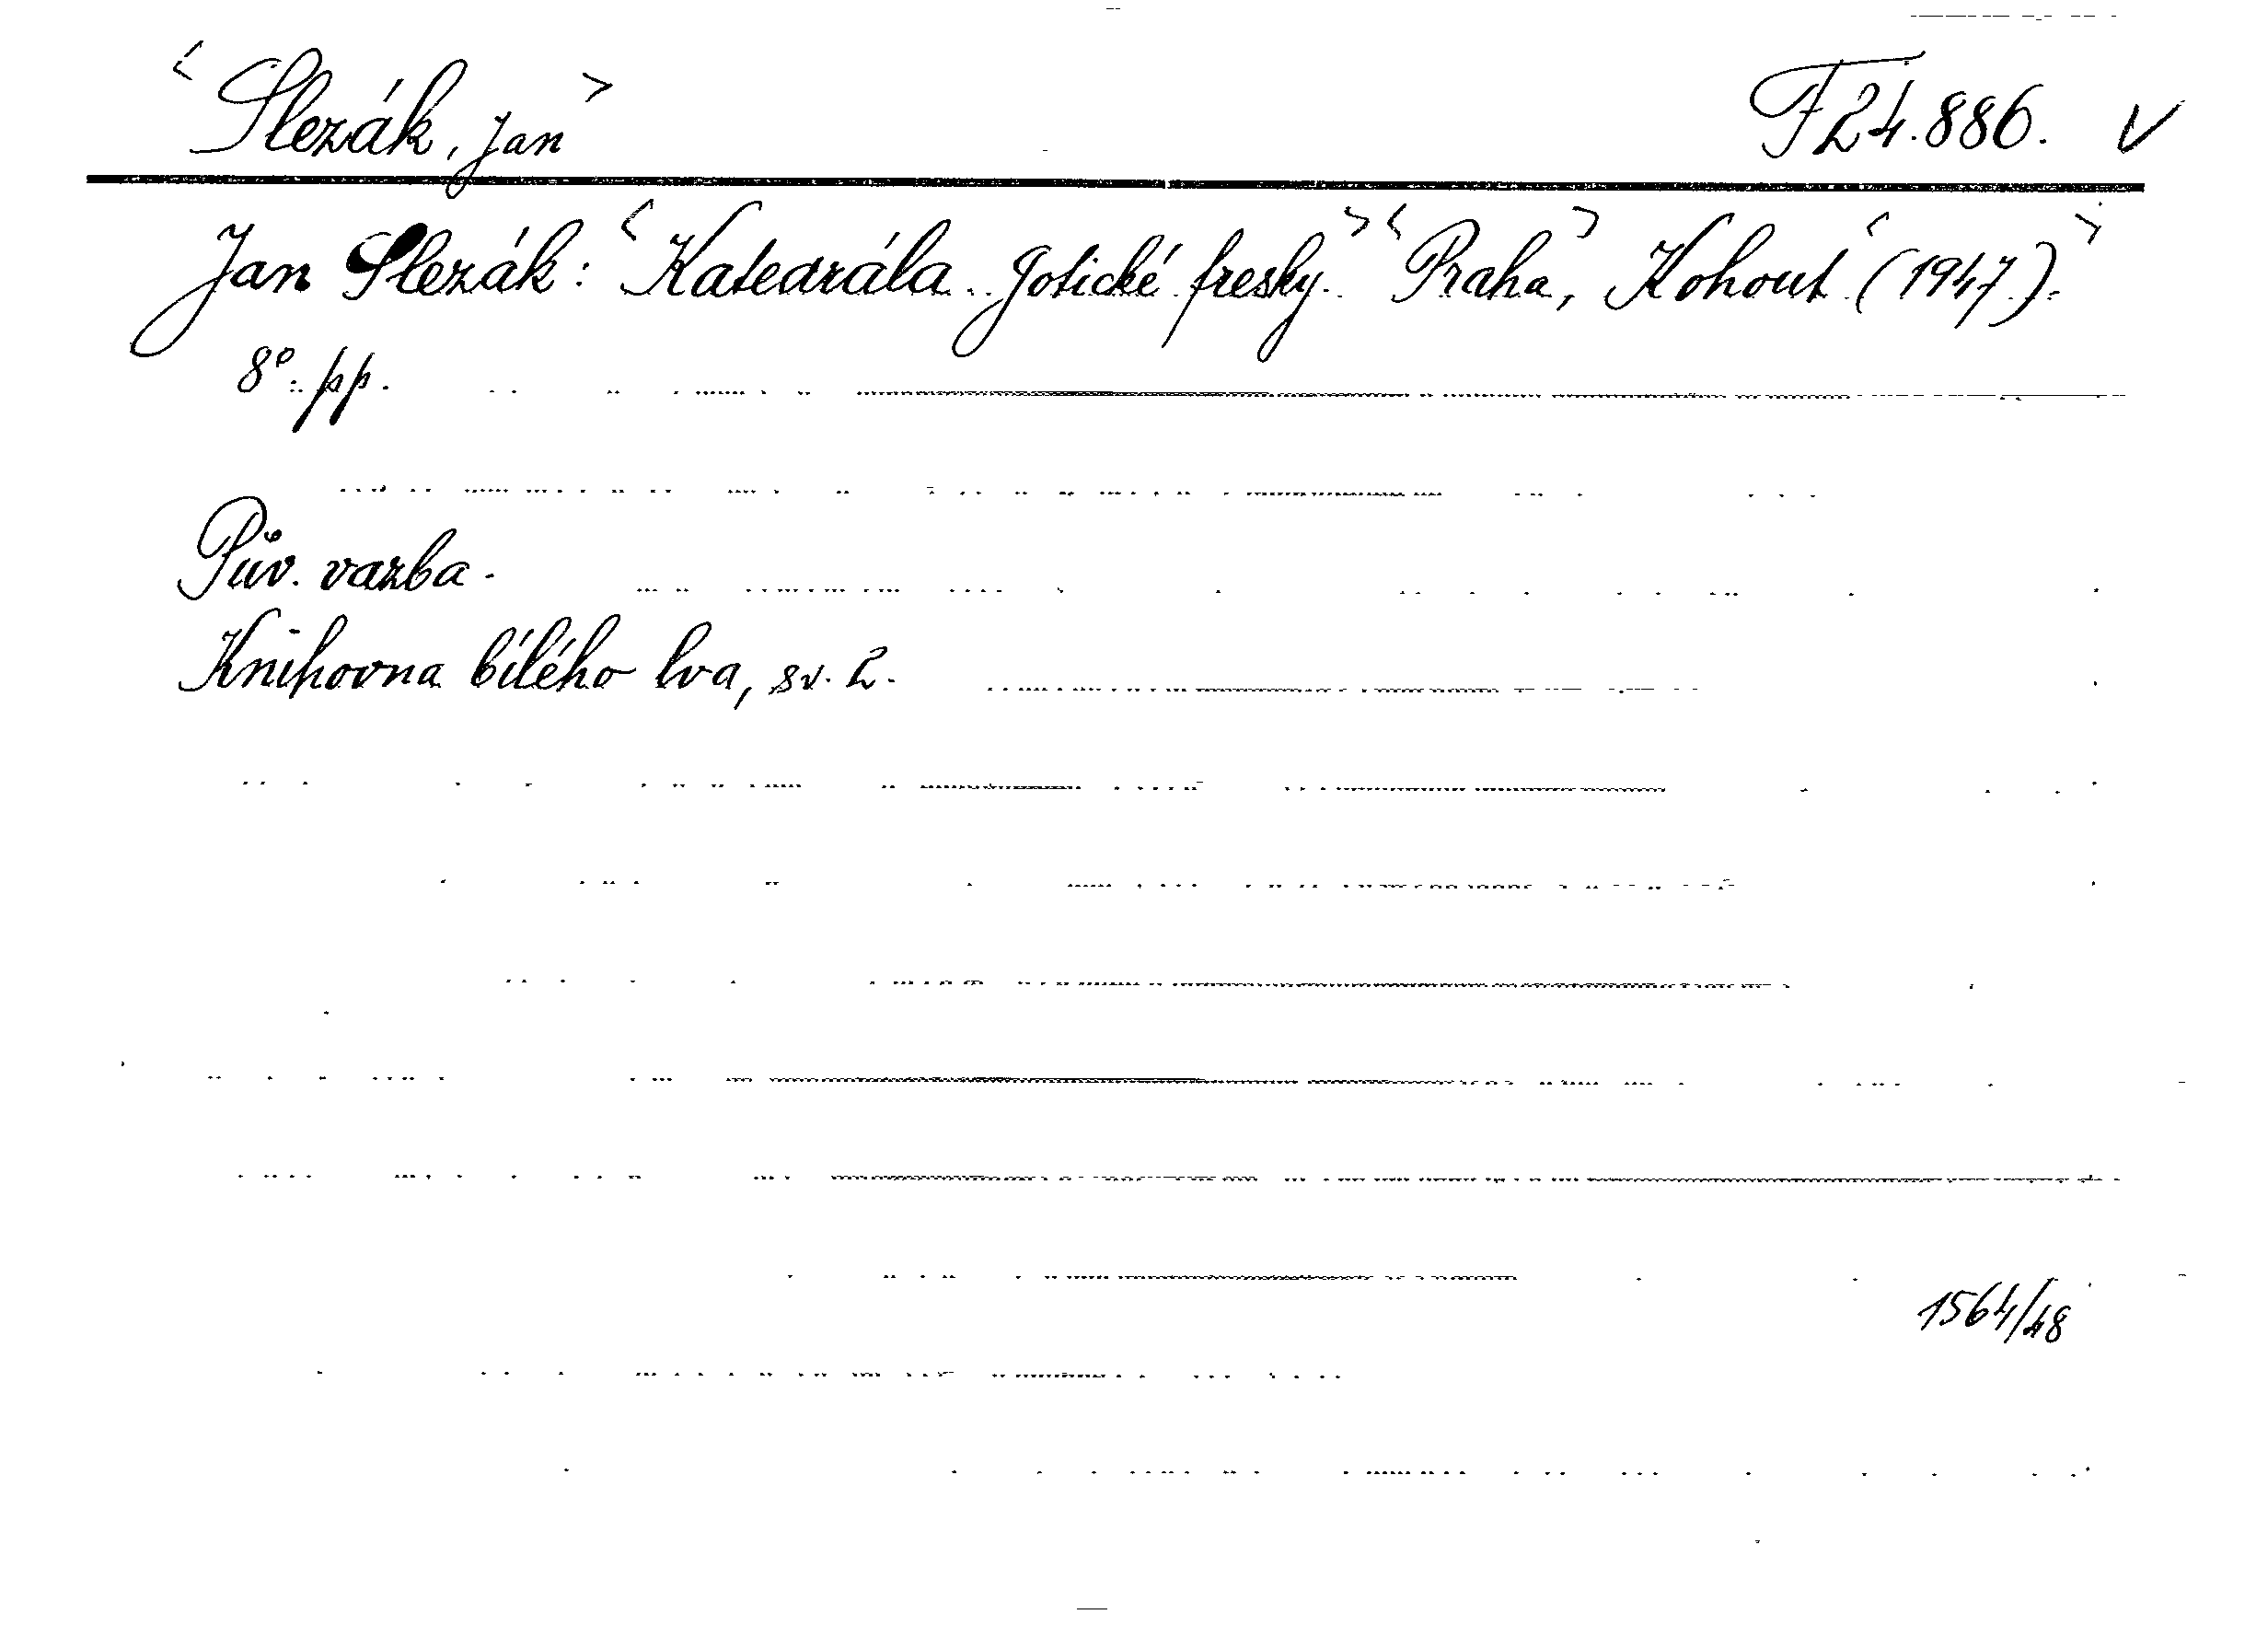 <Slezák, Jan> F 24.886. V
Jan Slezák: <Katedrála. Gotické fresky.> <Praha>, Kohout <(1947).>
8°. pp.
Pův. vazba.
Knihovna bílého lva, sv. 2.
1564/48